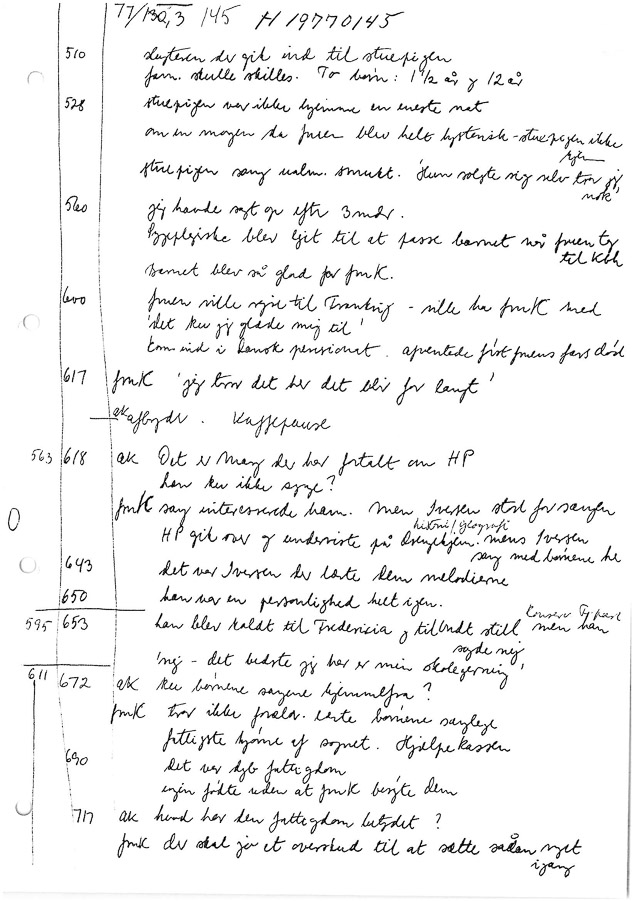 77/130,3 /45 H 19770145
510 slagteren der gik ind til stuepigen
fam. skulle skilles. To børn: 1 1/2 år og 12 år
528 stuepigen var ikke hjemme en eneste nat
om en morgen da fruen blev helt hysterisk - stuepigen ikke
hjem
stuepigen sang ualm. smukt. 'Hun solgte sig selv tror jeg
nok'
560 jeg havde sagt op efter 3 mdr.
blev lejet til at passe barnet når fruen tog
til Kbh
barnet blev så glad for fmK.
600 fruen ville rejse til Frankrig - ville ha fmK med
'det ku jeg glæde mig til'
kom ind i dansk pensionat. afventede først fruens fars død
617 fmK 'jeg tror det her det blir for langt'
ak afbryder. Kaffepause
563 618 ak Det er Mang der har fortalt om HP
han ku ikke synge?
fmK sang interesserede ham. men Iversen stod for sangen
historie/geografi
HP gik over og underviste på Drengehjem. mens Iversen
sang med børnene he
643 det var Iversen der lærte dem melodierne
650 han var en personlighed helt igen.
595 653 han blev kaldt til Fredericia og tilbudt still men han
sagde nej
'nej - det bedste jeg har er min skolegerning'
611 672 ak ku børnene sangene hjemmefra?
fmK tror ikke foræld. lærte børnene sanglege
fattigste hjørne af sognet. Hjælpekassen
690 det var dyb fattigdom
ingen fødte uden at fmK besøgte dem
717 ak hvad har den fattigdom betydet?
fmK der skal jo et overskud til at sætte sådan noget
igang